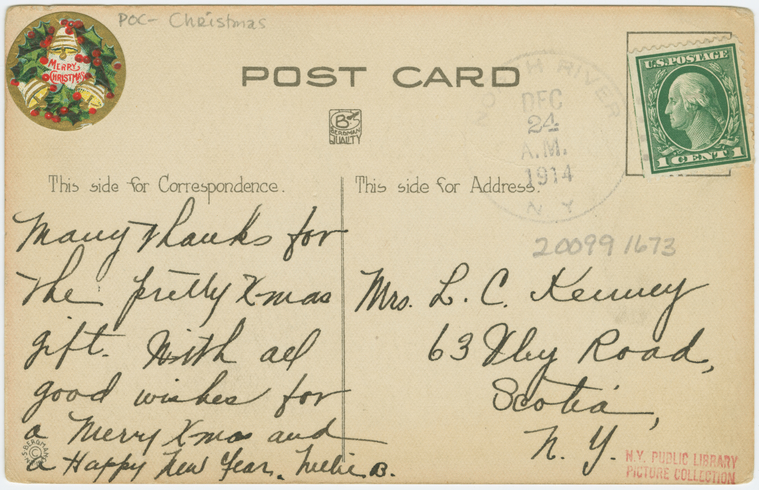 POC- Christmas
MERRY
CHRISTMAS
POST CARD
NORTH RIVER
DEC
24
A.M.
1914
N Y
U.S. POSTAGE
1 CENT 1
B
BERGMAN
QUALITY
This side for Correspondence.
This side for Address.
20099 1673
Many thanks for
the pretty Xmas
gift. With all
good wishes for
a Merry Xmas and
a Happy New Year. Nellie B.
Mrs. L. C. Kenney
63 Vley Road,
Scotia,
N. Y.
S. BERGMAN
N.Y. PUBLIC LIBRARY
PICTURE COLLECTION